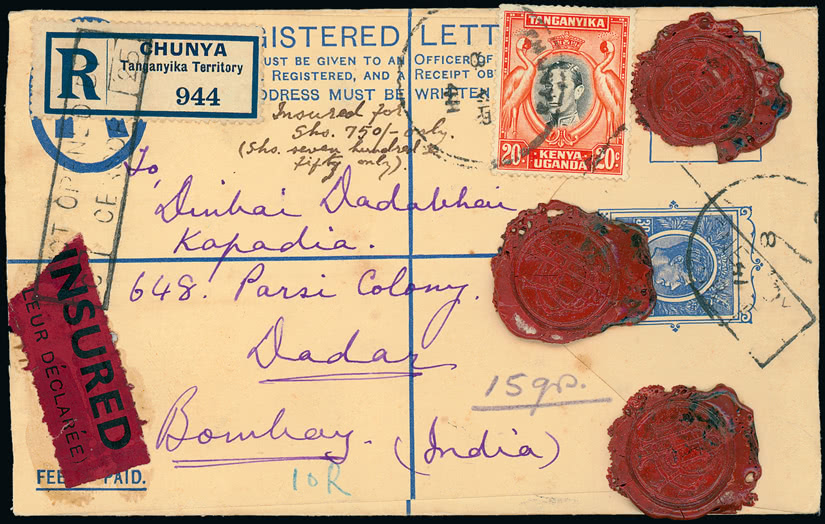 REGISTERED LETT
R
CHUNYA
Tanganyika Territory
944
MUST BE GIVEN TO AN OFFICER OF
REGISTERED, AND A RECEIPT OB
ADDRESS MUST BE WRITTEN
Insured for
Shs. 750/- only.
(Shs. seven hundred &
fifty only).
TANGANYIKA
20c
KENYA
UGANDA
20c
To
Dinbai Dadabhai
Kapadia.
648. Parsi Colony.
Dadar
Bombay. (India)
15gs.
10R
INSURED
LEUR DÉCLARÉE)
FEE PAID.